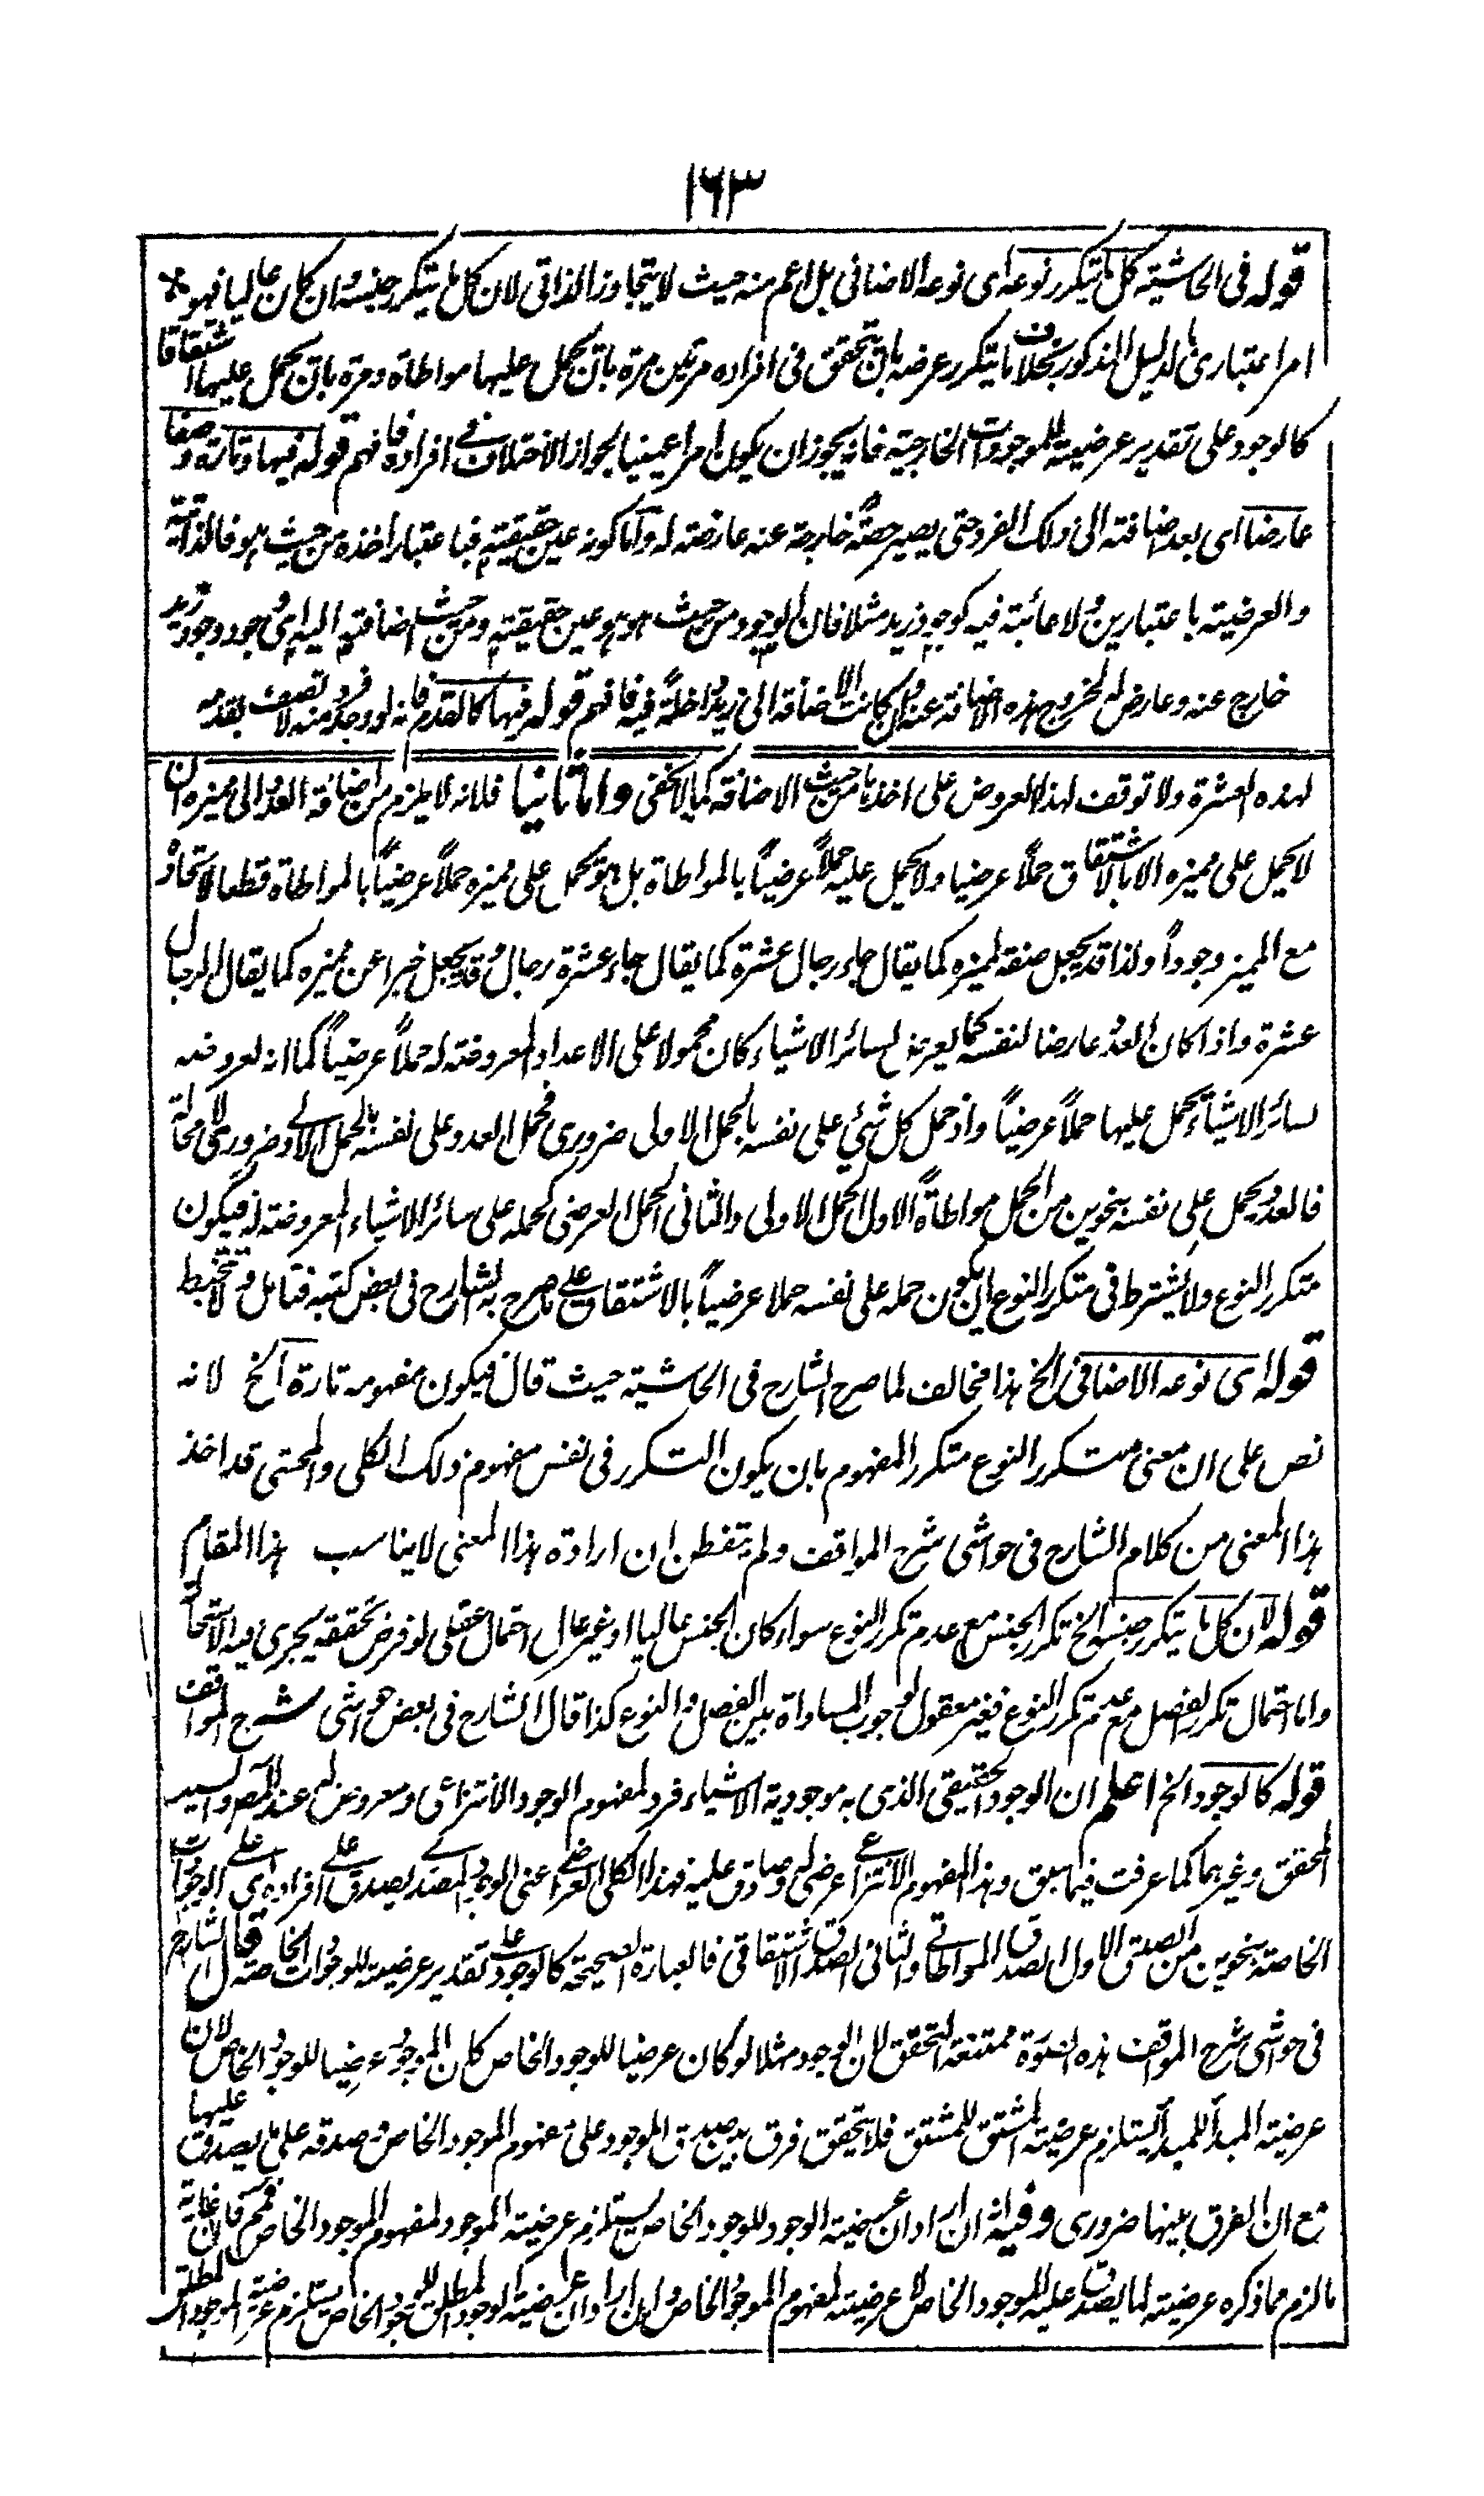 ١٦٣
قوله فى الحاشية كل ما يتكرر نوعه اى نوعه الاضافى بل اعم منه حيث لا يتجاوز الذاتى لان كل ما يتكرر جنسه وان كان عاليا فهو *
امر اعتبارى بالدليل المذكور بخلاف ما يتكرر عرضه بان يتحقق فى افراده مرتين مرة بان يحمل عليها مواطاة ومرة بان يحمل عليها اشتقاقا
كالوجود على تقدير عرضيته للموجودات الخارجية فانه يجوز ان يكون امرا عينيا لجواز الاختلاف فى افراده فافهم قوله فيها وتارة وصفا
عارضا اى بعد اضافته الى ذلك الفرد حتى يصير حصة خارجة عنه عارضة له واما كونه عين حقيقته فباعتبار اخذه من حيث هو فالذاتية
والعرضية باعتبارين ولا عائبة فيه كوجود زيد مثلا فان الوجود من حيث هو هو عين حقيقته ومن حيث اضافته اليه اى وجود وجود زيد
خارج عنه وعارض له لخروج هذه الاضافة عنه وان كانت الاضافة الى زيد داخلة فيه فافهم قوله فيها كالقدم فانه لو وجد فرد منه لاتصف بقدمه
لهذه العشرة ولا توقف لهذا العروض على اخذها من حيث الاضافة كما لا يخفى واما ثانيا فلانه لا يلزم من اضافة العدد الى مميزه ان
لا يحمل على مميزه الا بالاشتقاق حملا عرضيا ولا يحمل عليه حملا عرضيا بالمواطاة بل هو يحمل على مميزه حملا عرضيا بالمواطاة قطعا لاتحاده
مع المميز وجودا ولذا قد يجعل صفة لمميزه كما يقال جاء رجال عشرة كما يقال جاء عشرة رجال وقد يجعل خبرا عن مميزه كما يقال الرجال
عشرة واذا كان العدد عارضا لنفسه كما يعرض لسائر الاشياء كان محمولا على الاعداد المعروضة له حملا عرضيا كما انه لعروضه
لسائر الاشياء يحمل عليها حملا عرضيا واذ حمل كل شئ على نفسه بالحمل الاولى ضرورى فحمل العدد على نفسه بالحمل الاولى ضرورى لا محالة
فالعدد يحمل على نفسه بنحوين من الحمل مواطاة الاول الحمل الاولى والثانى الحمل العرضى كحمله على سائر الاشياء المعروضة له فيكون
متكرر النوع ولا يشترط فى متكرر النوع ان يكون حمله على نفسه حملا عرضيا بالاشتقاق على ما صرح به الشارح فى بعض كتبه فتامل ولا تخبط
قوله اى نوعه الاضافى الخ هذا مخالف لما صرح الشارح فى الحاشية حيث قال فيكون مفهومه تارة الخ لانه
نص على ان معنى متكرر النوع متكرر المفهوم بان يكون التكرر فى نفس مفهوم ذلك الكلى والمحشى قد اخذ
هذا المعنى من كلام الشارح فى حواشى شرح المواقف ولم يتفطن ان ارادة هذا المعنى لا يناسب هذا المقام
قوله لان كل ما يتكرر جنسه الخ تكرر الجنس مع عدم تكرر النوع سواء كان الجنس عاليا او غير عال احتمال عقلى لو فرض تحققه يجرى فيه الاستحالة
واما احتمال تكرر الفصل مع عدم تكرر النوع فغير معقول لوجوب المساواة بين الفصل والنوع كذا قال الشارح فى بعض حواشى شرح المواقف
قوله كالوجود الخ اعلم ان الوجود الحقيقى الذى به موجودية الاشياء فرد لمفهوم الوجود الانتزاعى ومعروض له عند المصر والسيد
المحقق وغيرهما كما عرفت فيما سبق وهذا المفهوم الانتزاعى عرضى له وصادق عليه فهذا الكلى العرضى اعنى الوجود المصدرى يصدق على افراده اى على الوجودات
الخاصة بنحوين من الصدق الاول الصدق المواطاتى والثانى الصدق الاشتقاقى فالعبارة الصحيحة كالوجود على تقدير عرضيته للوجودات الخاصة قال الشارح
فى حواشى شرح المواقف هذه الصورة ممتنعة التحقق لان الوجود مثلا لو كان عرضيا للوجود الخاص كان الموجود عرضيا للموجود الخاص لان
عرضية المبدأ للمبدأ يستلزم عرضية المشتق للمشتق فلا يتحقق فرق بين صدق الموجود على مفهوم الموجود الخاص وصدقه على ما يصدق عليها
مع ان الفرق بينهما ضرورى وفيه انه ان اراد ان عرضية الوجود للوجود الخاص يستلزم عرضية الموجود لمفهوم الموجود الخاص فممنوع فان غاية
ما لزم مما ذكره عرضيته لما يصدق عليه الموجود الخاص لا عرضيته لمفهوم الموجود الخاص وان اراد ان عرضية الوجود المطلق للوجود الخاص يستلزم عرضية الموجود المطلق